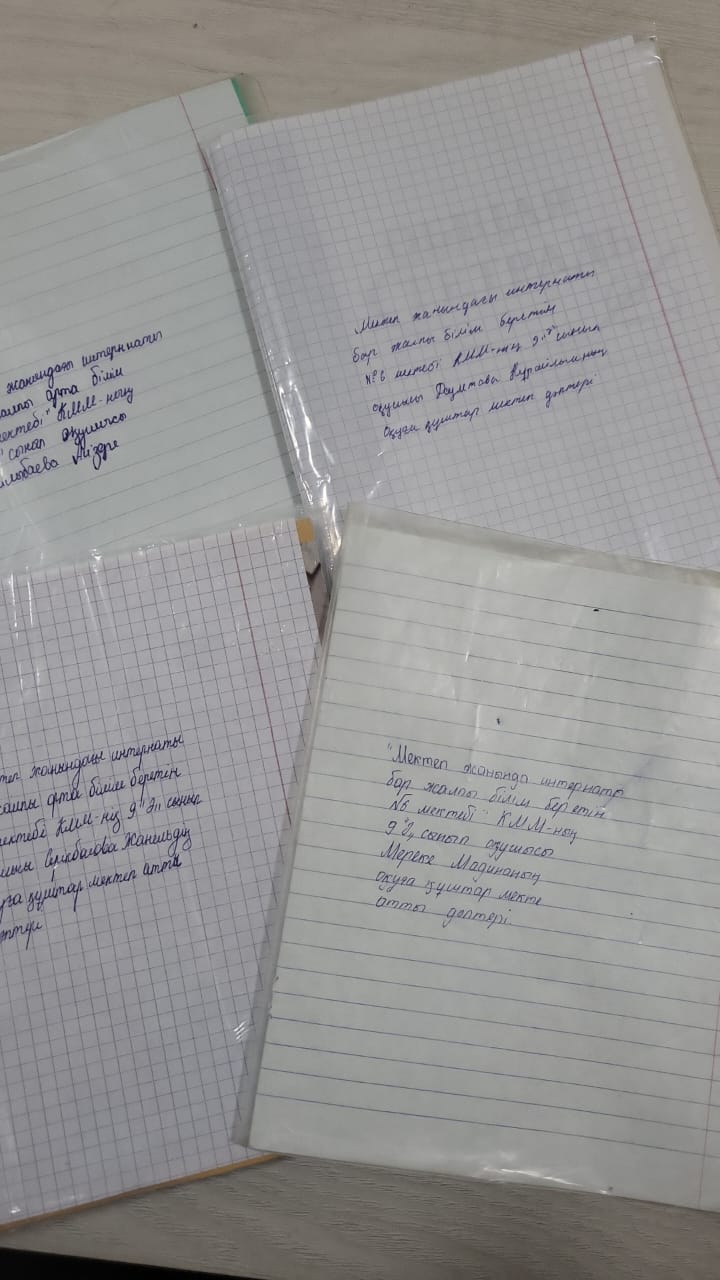 жанындағы интернаты
жалпы орта білім
мектебі" КММ-нің
сынып оқушысы
Айзере
Мектеп жанындағы интернаты
бар жалпы білім беретін
№6 мектебі КММ-нің 9 "Э" сынып
оқушысы
оқуға құштар мектеп дәптері
жанындағы интернаты
жалпы орта білім беретін
мектебі КММ-нің 9 "Э" сынып
Серікбаева Жанельдің
құштар мектеп атты
"Мектеп жанында интернаты
бар жалпы білім беретін
№6 мектебі" КММ-нің
9 "Э" сынып оқушысы
Мереке Мадинаның
оқуға құштар мекте
атты дәптері